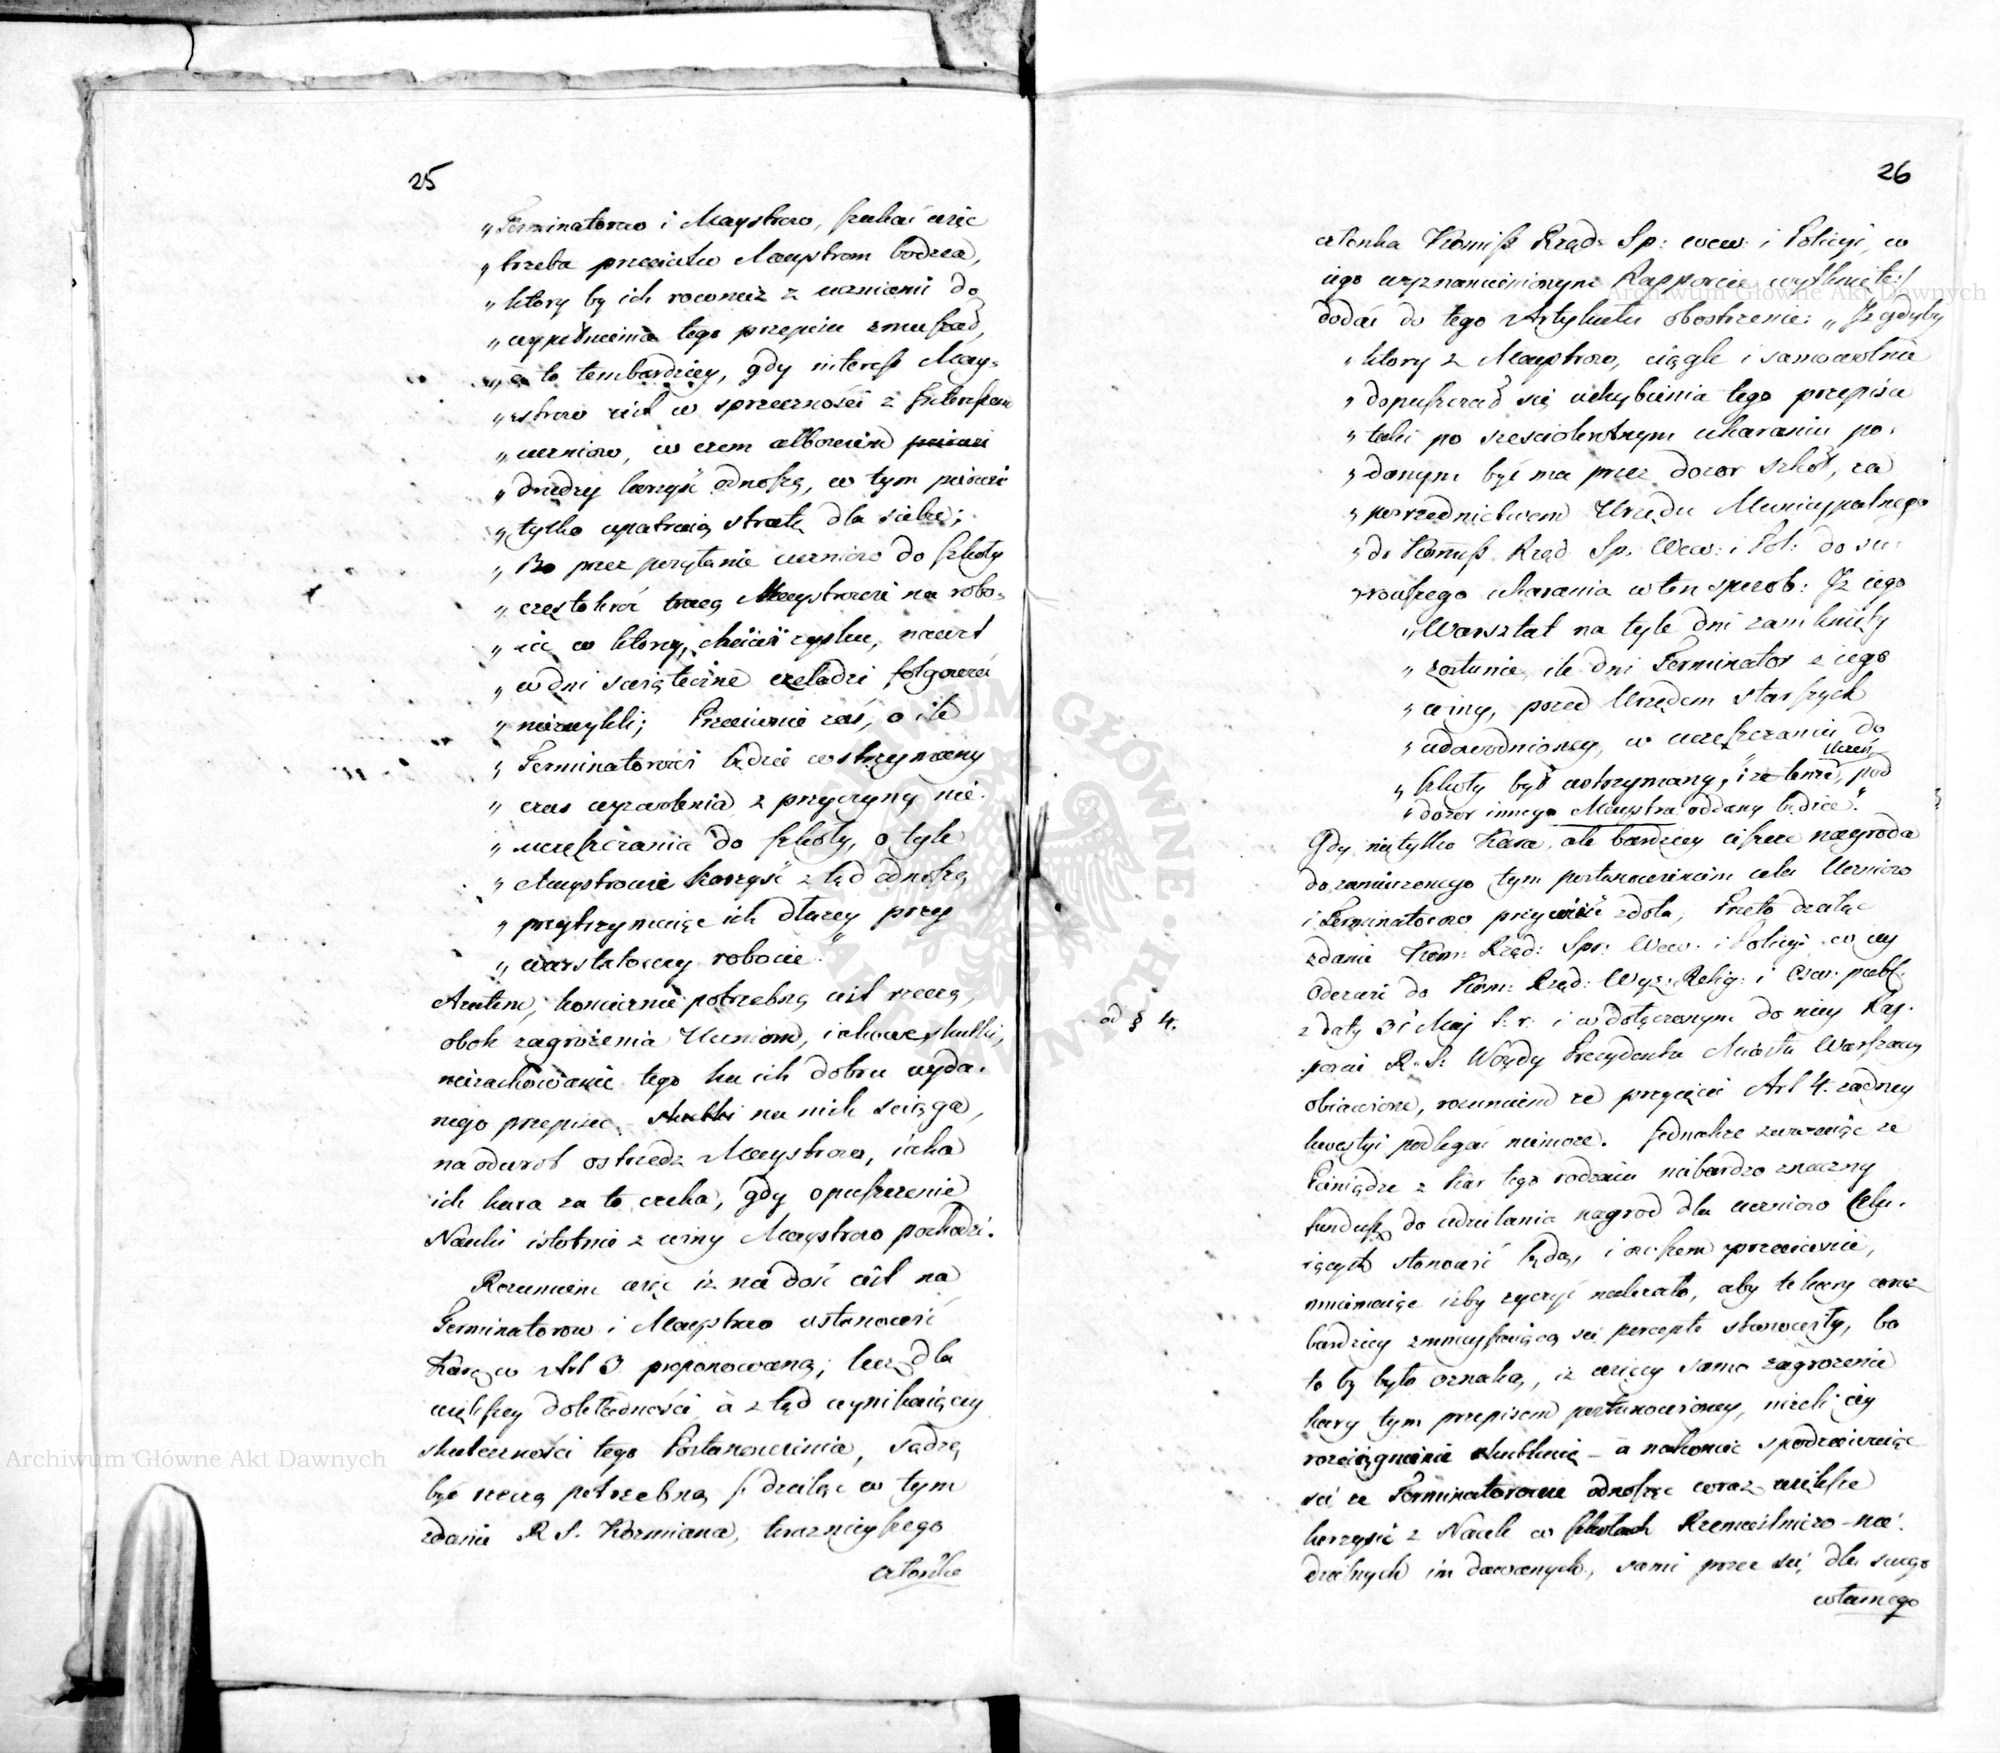 25
„Terminatorow i Maystrow, szukać więc
„trzeba przeciwko Maystrom bodzca,
„ktory by ich rowniez z uczniami do
„wypełnienia tego przepisu zmuszał,
„a to tembardziey, gdy interess May-
„strow iest w sprzeczności z Interessem
„uczniow, w czem albowiem pierwsi
„drudzy korzyść odnoszą, w tym pierwsi
„tylko upatruią stratę dla siebie;
„Bo przez posyłanie uczniow do szkoły
„częstokroć tracą Maystrowie na robo-
„cie w ktorey, chciwi zysku, nawet
„w dni swiąteczne czeladzi folgować
„niezwykli; Przeciwnie zaś, o ile
„Terminatorowi będzie wstrzymany
„czas wyzwolenia z przyczyny nie-
„uczęszczania do szkoły, o tyle
„Maystrowie korzyść z tąd odnoszą
„przytrzymuiąc ich dłużey przy
„warsztatowey robocie."
Azatem, koniecznie potrzebną iest rzeczą,
obok zagrożenia Uczniom, iakowe skutki,
niezachowanie tego ku ich dobru wyda-
nego przepisu skutki na nich sciąga,
na odwrot ostrzedz Maystrow, iaka
ich kara za to czeka, gdy opuszczenie
Nauki istotnie z winy Maystrow pochodzi.
Rozumiem więc iż na dość iest na
Terminatorow i Maystrow ustanowić
Karę w Art 3 proponowaną; lecz dla
większey dokładności a z tąd wynikaiącey
skuteczności tego Postanowienia, sądzę
być rzeczą potrzebną podzielaiąc w tym
zdanie R. S. Kozmiana, teraznieyszego
członka
26
członka Komiss Rząd: Sp: wew: i Policyi, w
iego wyznamienionym Rapporcie wytknięte/
dodać do tego Artykułu obostrzenie: „Iż gdyby
„ktory z Maystrow, ciągle i samowolnie
„dopuszczał się uchybienia tego przepisu
„taki po sześciokrotnym ukaraniu po-
„danym być ma przez dozor szkół, za
„posrzednictwem Urzędu Municypalnego
„do Komiss. Rząd. Sp: Wew: i Pol: do su-
„rowszego ukarania w ten sposob: Iż iego
„Warsztat na tyle dni zamknięty
„zostanie, ile dni Terminator z iego
„winy, przed Urzędem starszych
„udowodnioney, w uczęszczaniu do
„szkoły był wstrzymany, i że tenże Uczeń, pod
„dozor innego Maystra oddany będzie."
od § 4.
Gdy nie tylko Kara, ale bardziey ieszcze nagroda
do zamierzonego tym postanowieniem celu Uczniow
i Terminatorow przywieść zdoła, Przeto dzieląc
zdanie Kom: Rząd: Spr: Wew: i Policyi w iey
Odezwie do Kom: Rząd: Wyz: Relig: i Ośw: publ:
z daty 31 Maj b. r. i w dołączonym do niey Rap-
porcie R. S. Woydy Prezydenta Miasta Warszawy
obiawione, rozumiem że przyięcie Art 4. żadney
kwestyi podlegać niemoże. Jednakże zważaiąc że
Pieniądze z kar tego rodzaiu niebardzo znaczny
fundusz do udzielania nagrod dla uczniow celu-
iących stanowić będą, i owszem przeciwnie,
mniemaiąc iżby życzyć należało, aby te kary coraz
bardziey zmnieyszaiącą się percepte stanowiły, bo
to by było oznaką, iż więcey samo zagrożenie
kary tym przepisem postanowioney, niżeli iey
rozciągnienie skutkuie – a nakoniec spodziewaiąc
się że Terminatorowie odnosząc coraz większe
korzyści z Nauk w szkołach Rzemieślniczo-nie-
dzielnych im dawanych, sami przez się, dla swego
własnego
Archiwum Główne Akt Dawnych
Archiwum Główne Akt Dawnych